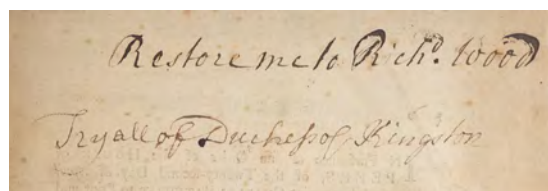 Restore me to Richd. Wood
Tryall of Duchess of Kingston